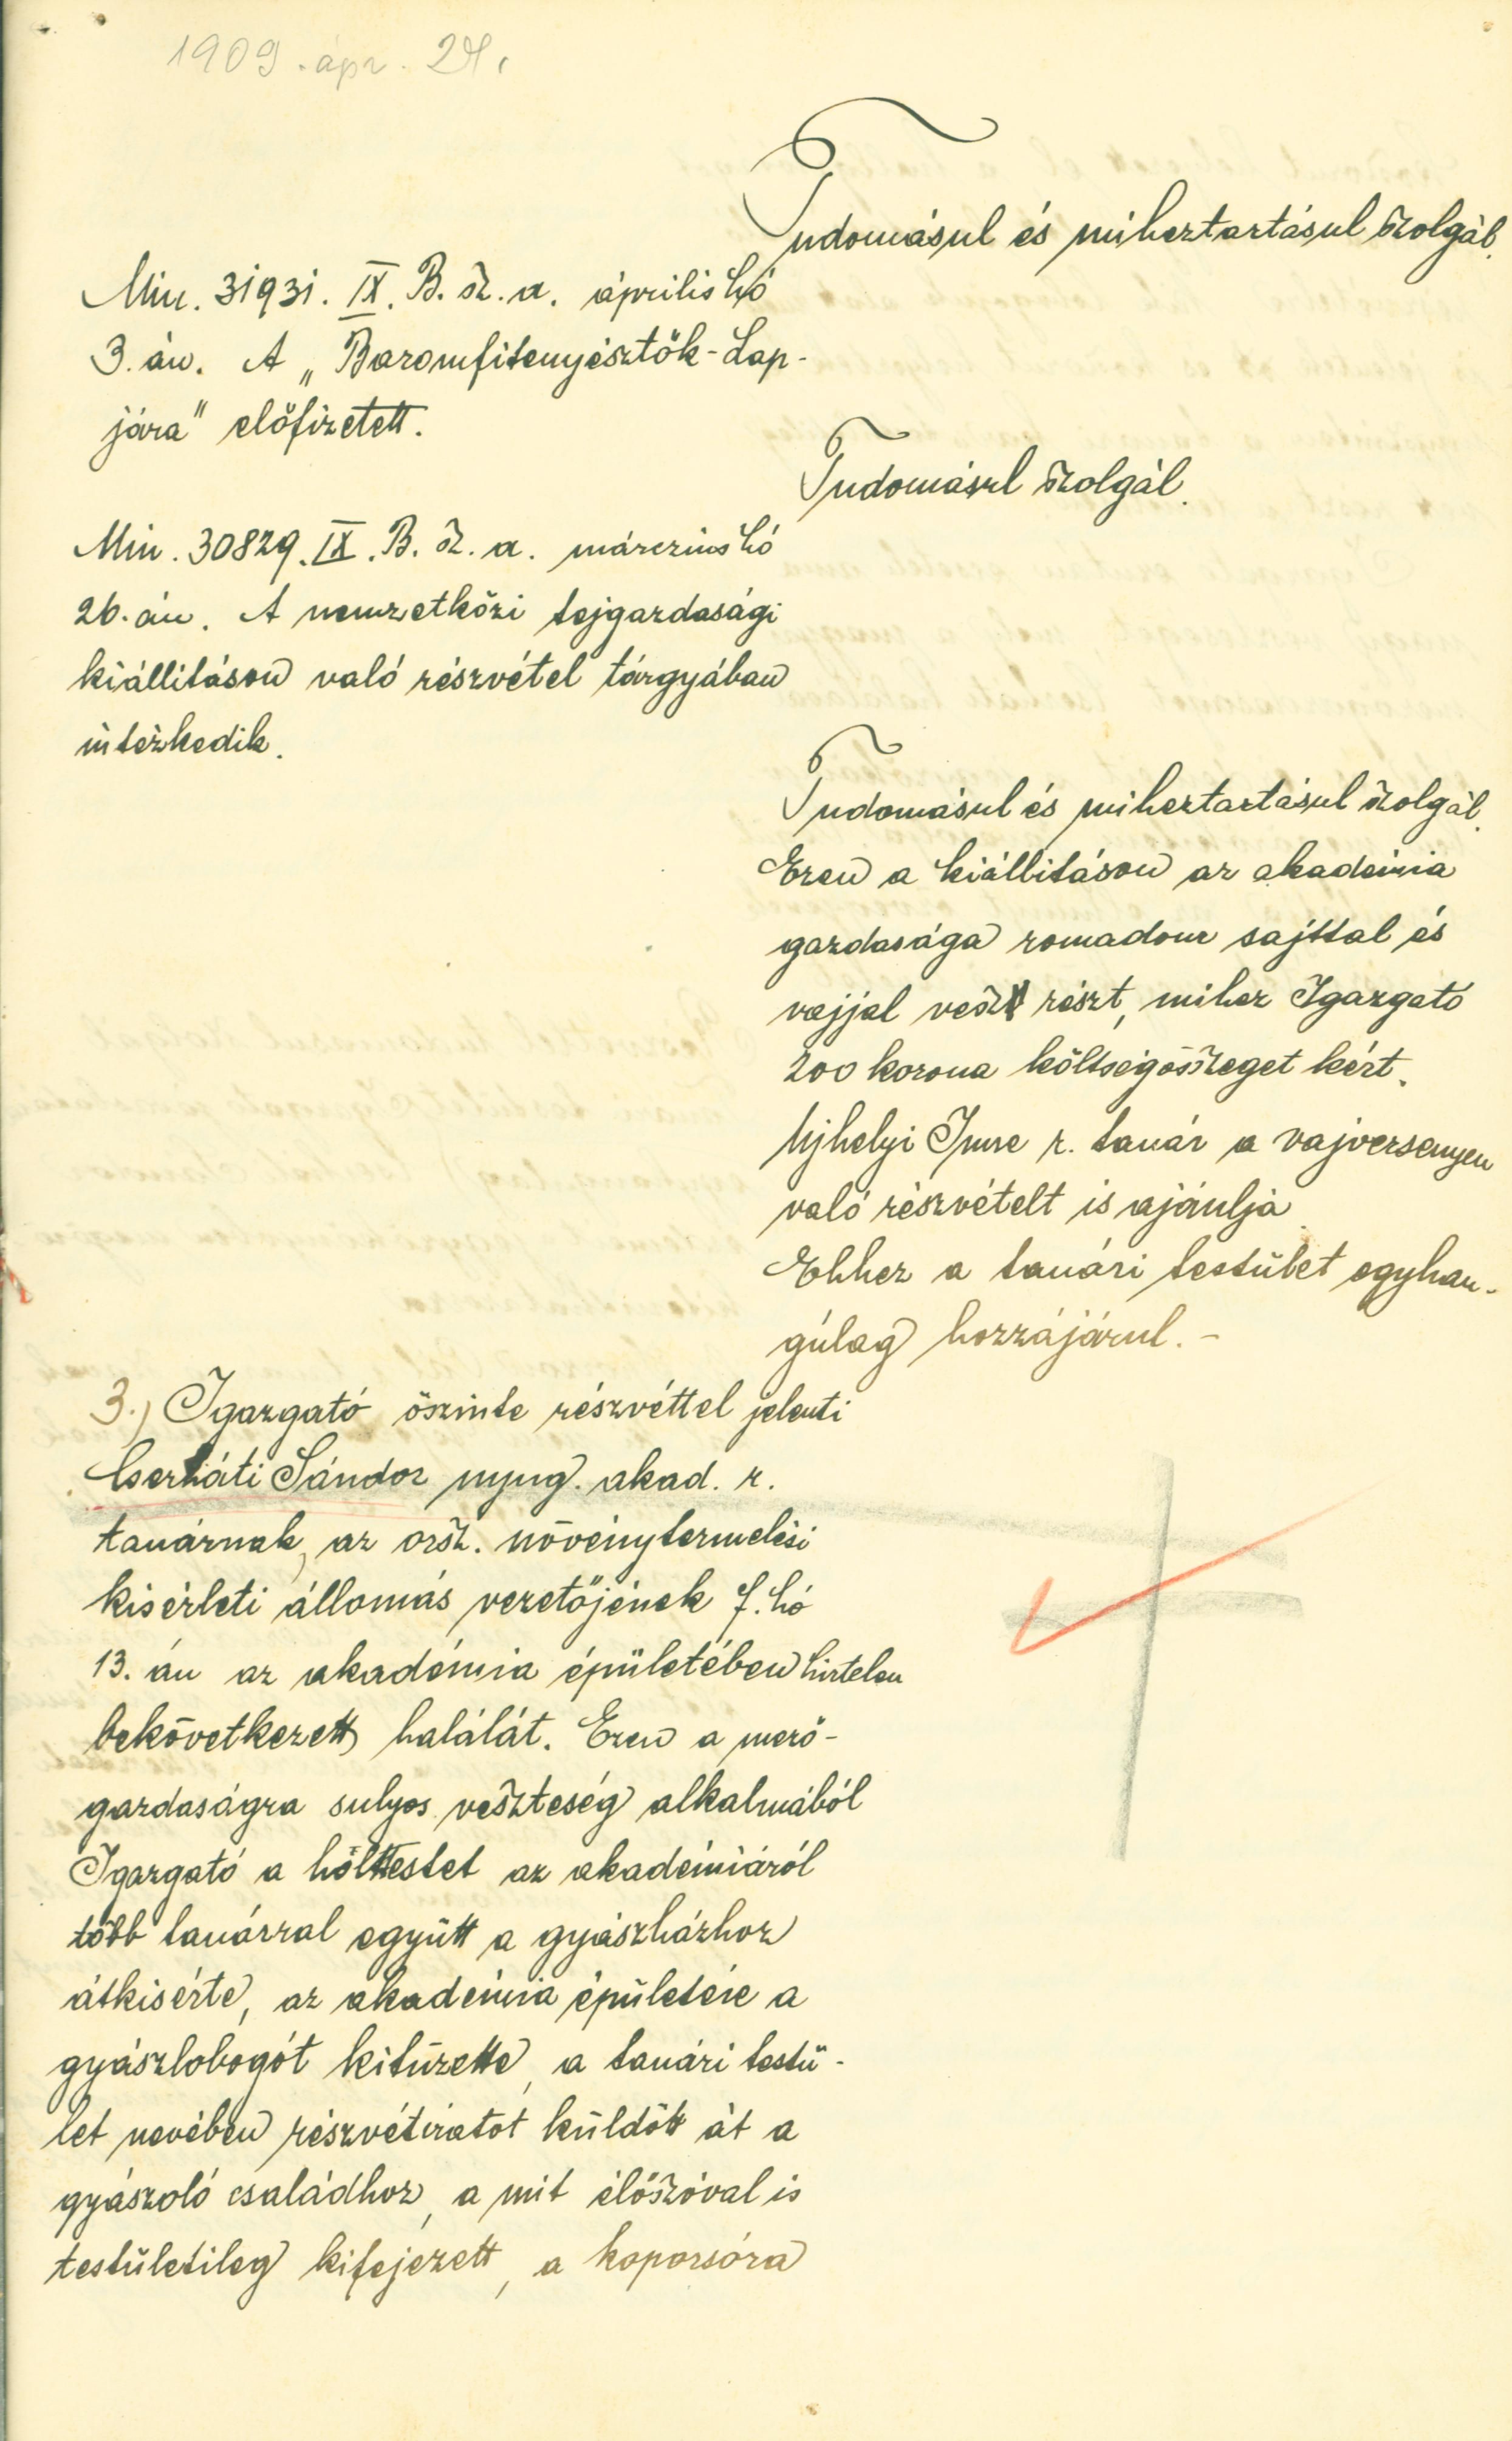 1909. ápr. 24.
Tudomásul és miheztartásul szolgál.
Min. 31931. IX. B. sz. a. április hó
3.án. A „Baromfitenyésztök-Lap-
jára" előfizetett.
Tudomásul szolgál.
Min. 30829. IX. B. sz. a. márczius hó
26.án. A nemzetközi tejgazdasági
kiállitáson való részvétel tárgyában
intézkedik.
Tudomásul és miheztartásul szolgál.
Ezen a kiállitáson az akadémia
gazdasága romadour sajttal és
vajjal vesz részt, mihez Igazgató
200 korona költségösszeget kért.
Ujhelyi Imre r. tanár a vajversenyen
való részvételt is ajánlja.
Ehhez a tanári testület egyhan-
gúlag hozzájárul. -
3.) Igazgató öszinte részvéttel jelenti
Cserháti Sándor nyug. akad. r.
tanárnak, az orsz. növénytermelési
kisérleti állomás vezetőjének f. hó
13. án az akadémia épületében hirtelen
bekövetkezett halálát. Ezen a mező-
gazdaságra sulyos veszteség alkalmából
Igazgató a hölttestet az akadémiáról
több tanárral együtt a gyászházhoz
átkisérte, az akadémia épületére a
gyászlobogót kitüzette, a tanári testü-
let nevében részvétiratot küldött át a
gyászoló családhoz, a mit élőszóval is
testületileg kifejezett, a koporsóra